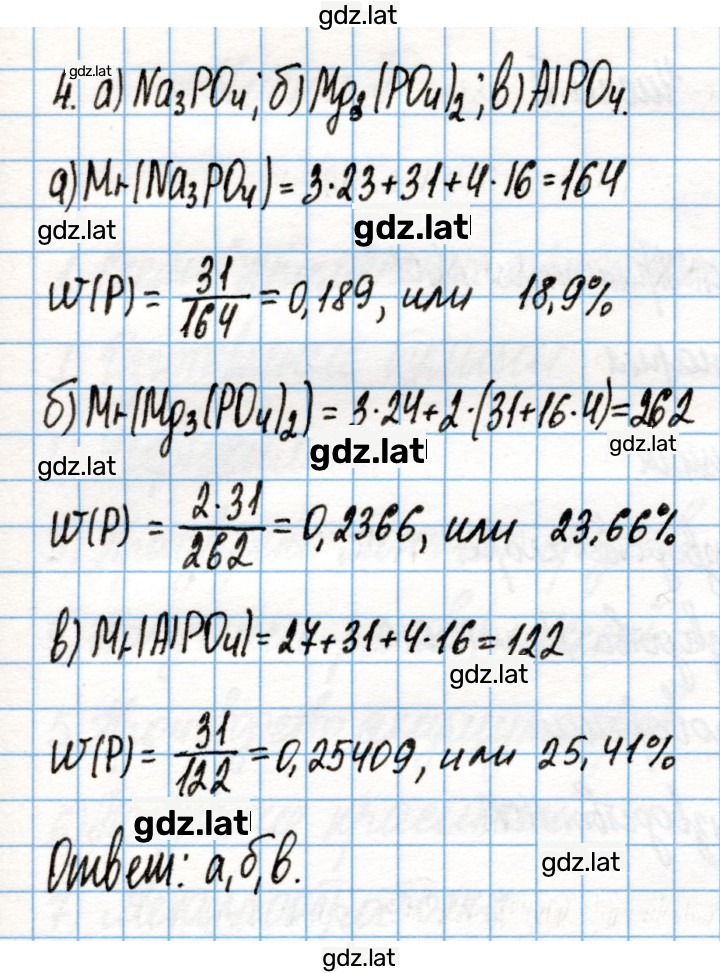 gdz.lat
gdz.lat
4. а) Na₃PO₄; б) Mg₃(PO₄)₂; в) AlPO₄.
а) Mr(Na₃PO₄) = 3·23+31+4·16=164
gdz.lat gdz.lat
W(P) = 31/164 = 0,189, или 18,9%
б) Mr(Mg₃(PO₄)₂) = 3·24+2·(31+16·4)=262
gdz.lat gdz.lat gdz.lat
W(P) = 2·31/262 = 0,2366, или 23,66%
в) Mr(AlPO₄)=27+31+4·16=122
gdz.lat
W(P) = 31/122 = 0,25409, или 25,41%
gdz.lat
Ответ: а,б,в.
gdz.lat
gdz.lat